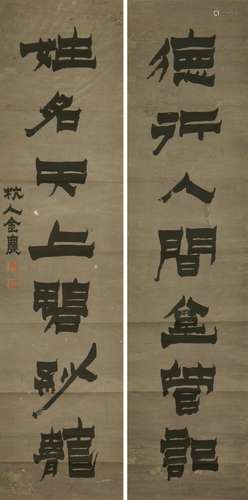 德行人間金管記
姓名天上碧紗籠
杭人金農